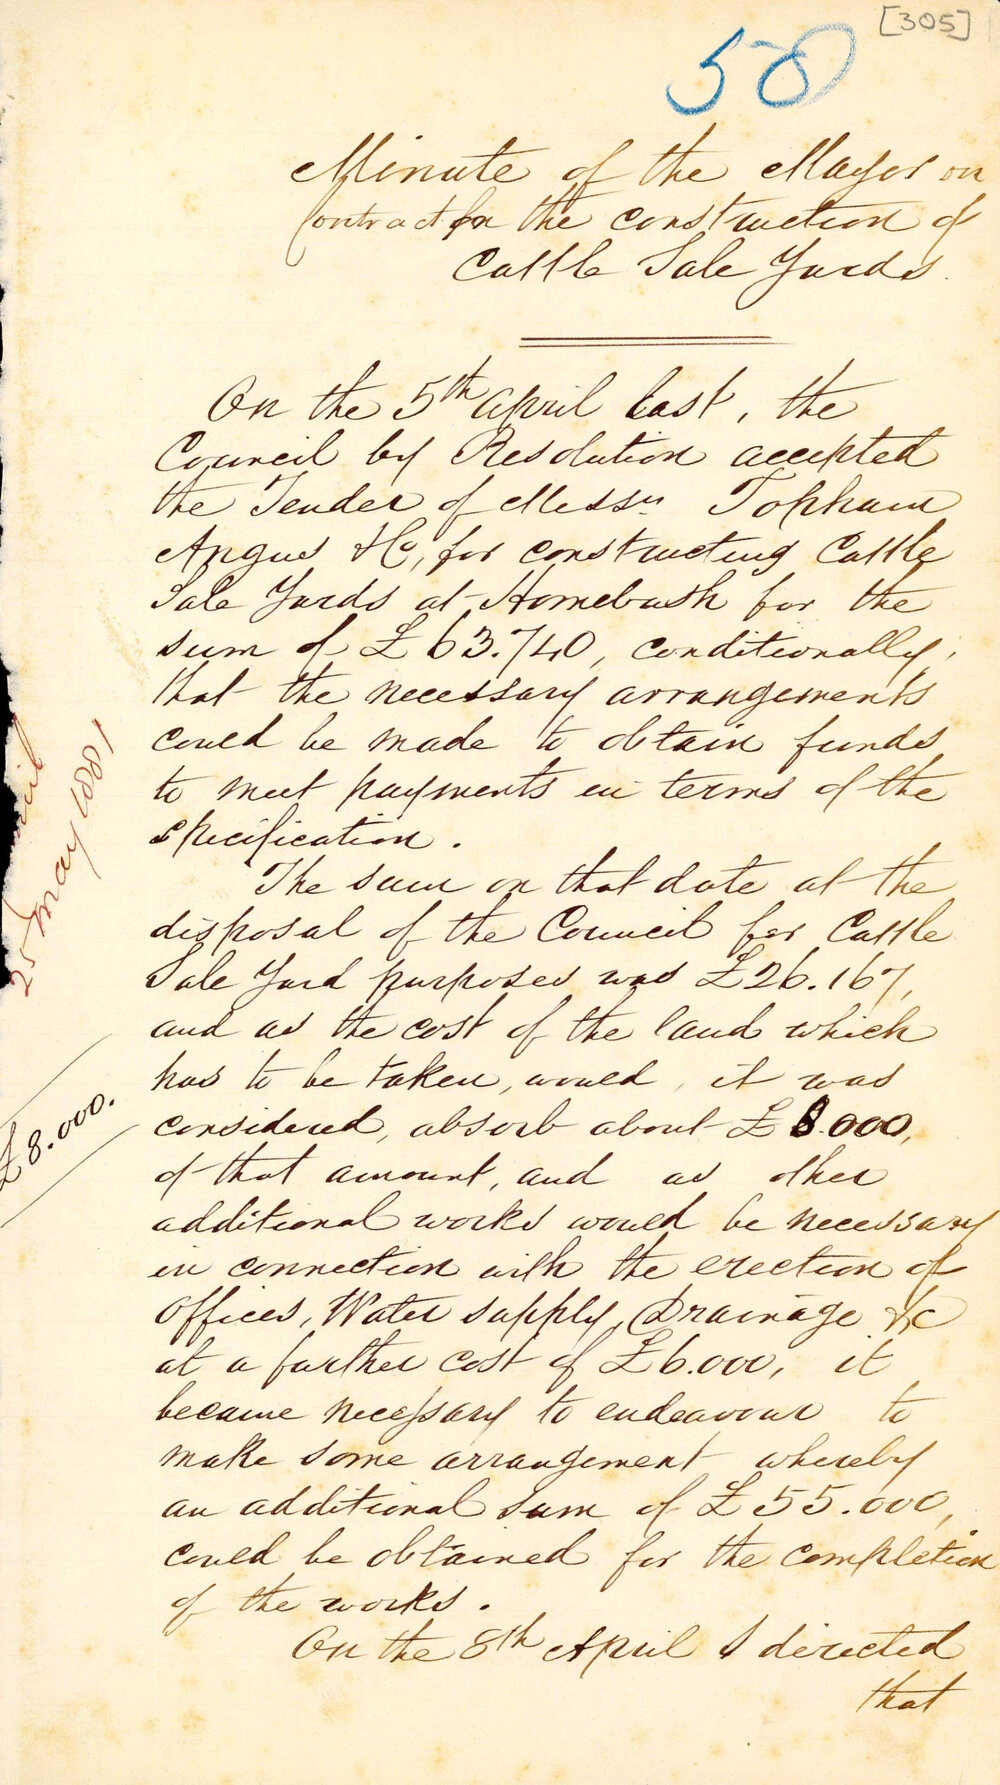 [305]
50
Minute of the Mayor on
Contract for the construction of
Cattle Sale Yards.
On the 5th April last, the
Council by Resolution accepted
the Tender of Messrs Topham
Angus & Co, for constructing Cattle
Sale Yards at Homebush for the
sum of £63.740, conditionally,
that the necessary arrangements
could be made to obtain funds
to meet payments in terms of the
specification.
The sum on that date at the
disposal of the Council for Cattle
Sale Yard purposes was £26.167,
and as the cost of the land which
has to be taken, would, it was
considered, absorb about £8.000,
of that amount, and as other
additional works would be necessary
in connection with the erection of
Offices, Water supply, Drainage &c
at a further cost of £6.000, it
became necessary to endeavour to
make some arrangement whereby
an additional sum of £55.000,
could be obtained for the completion
of the works.
On the 8th April I directed
that
25 May 1881
£8.000.